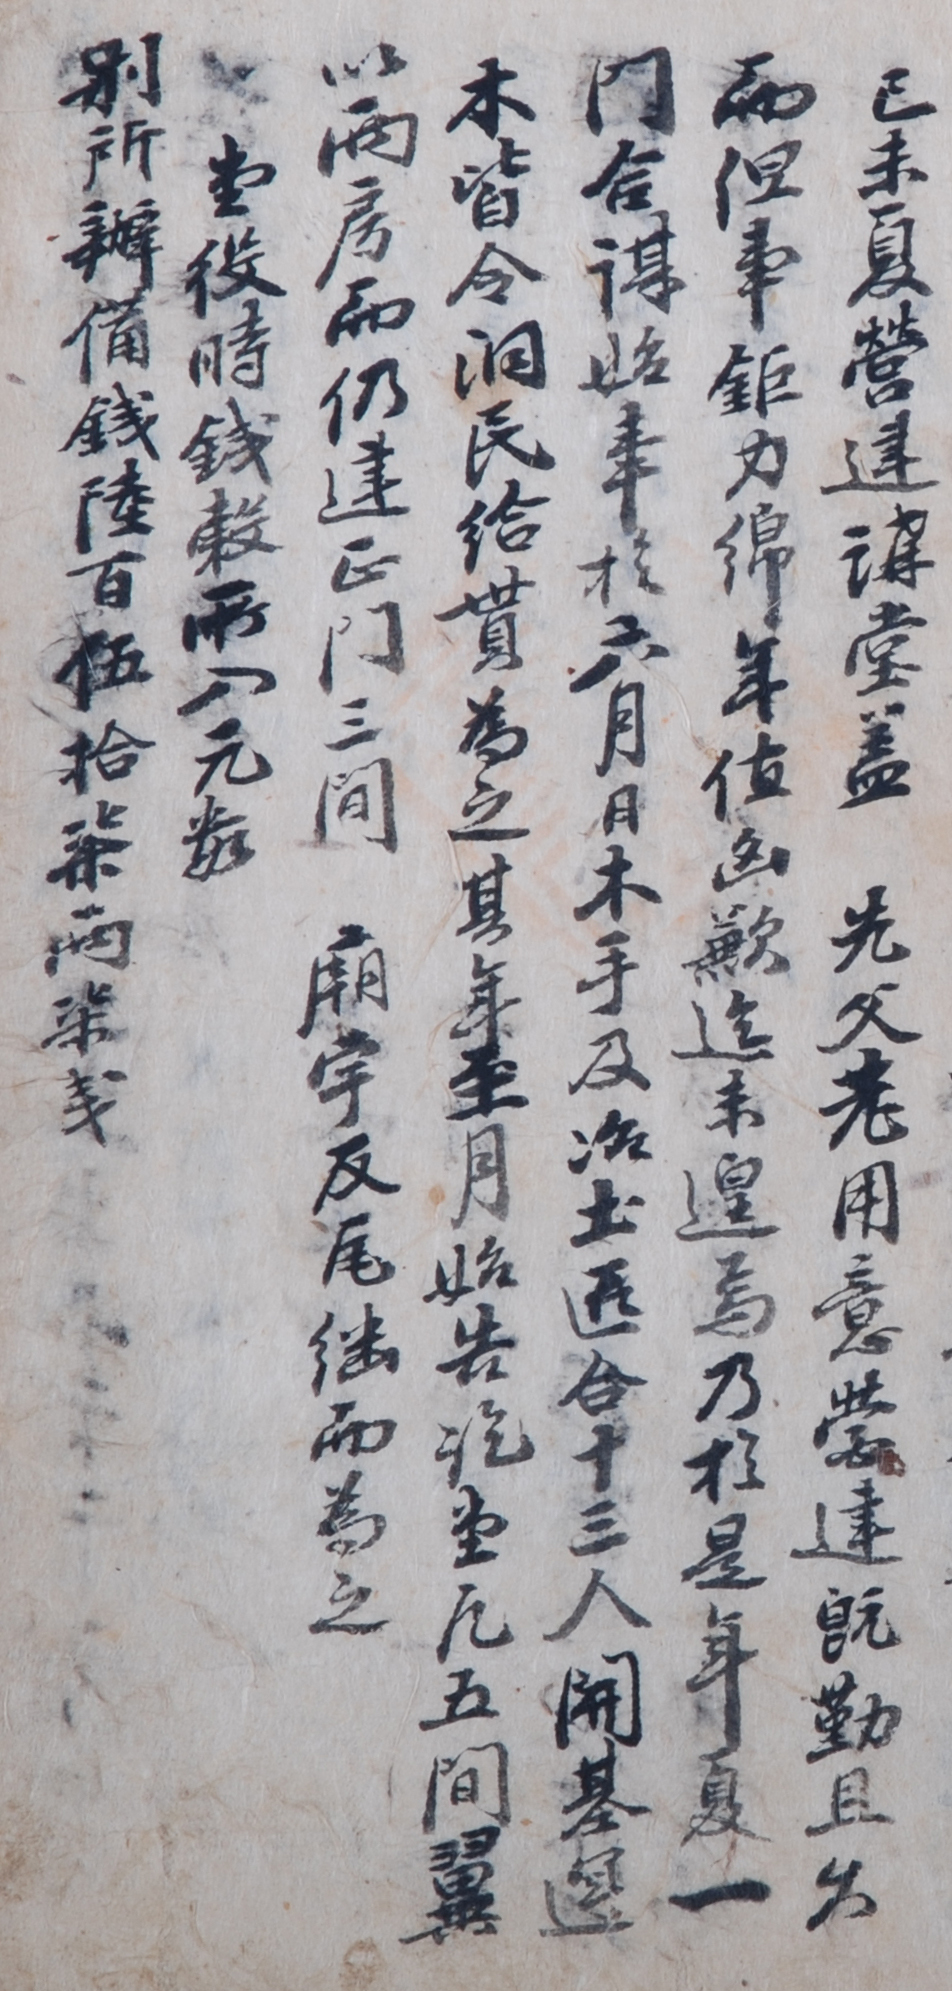 己未夏營建講堂盖 先父老用意營建旣勤且久
而但事鉅力綿年值凶歉迄未遑焉乃於是年夏一
門合謀始事於六月日木手及冶土匠合十三人開基運
木皆令洞民給貰為之其年至月始告訖堂凡五間翼
以兩房而仍建正門三間 廟宇反瓦継而為之
堂役時錢穀所入元數
別所辦備錢陸百伍拾柒兩柒戔